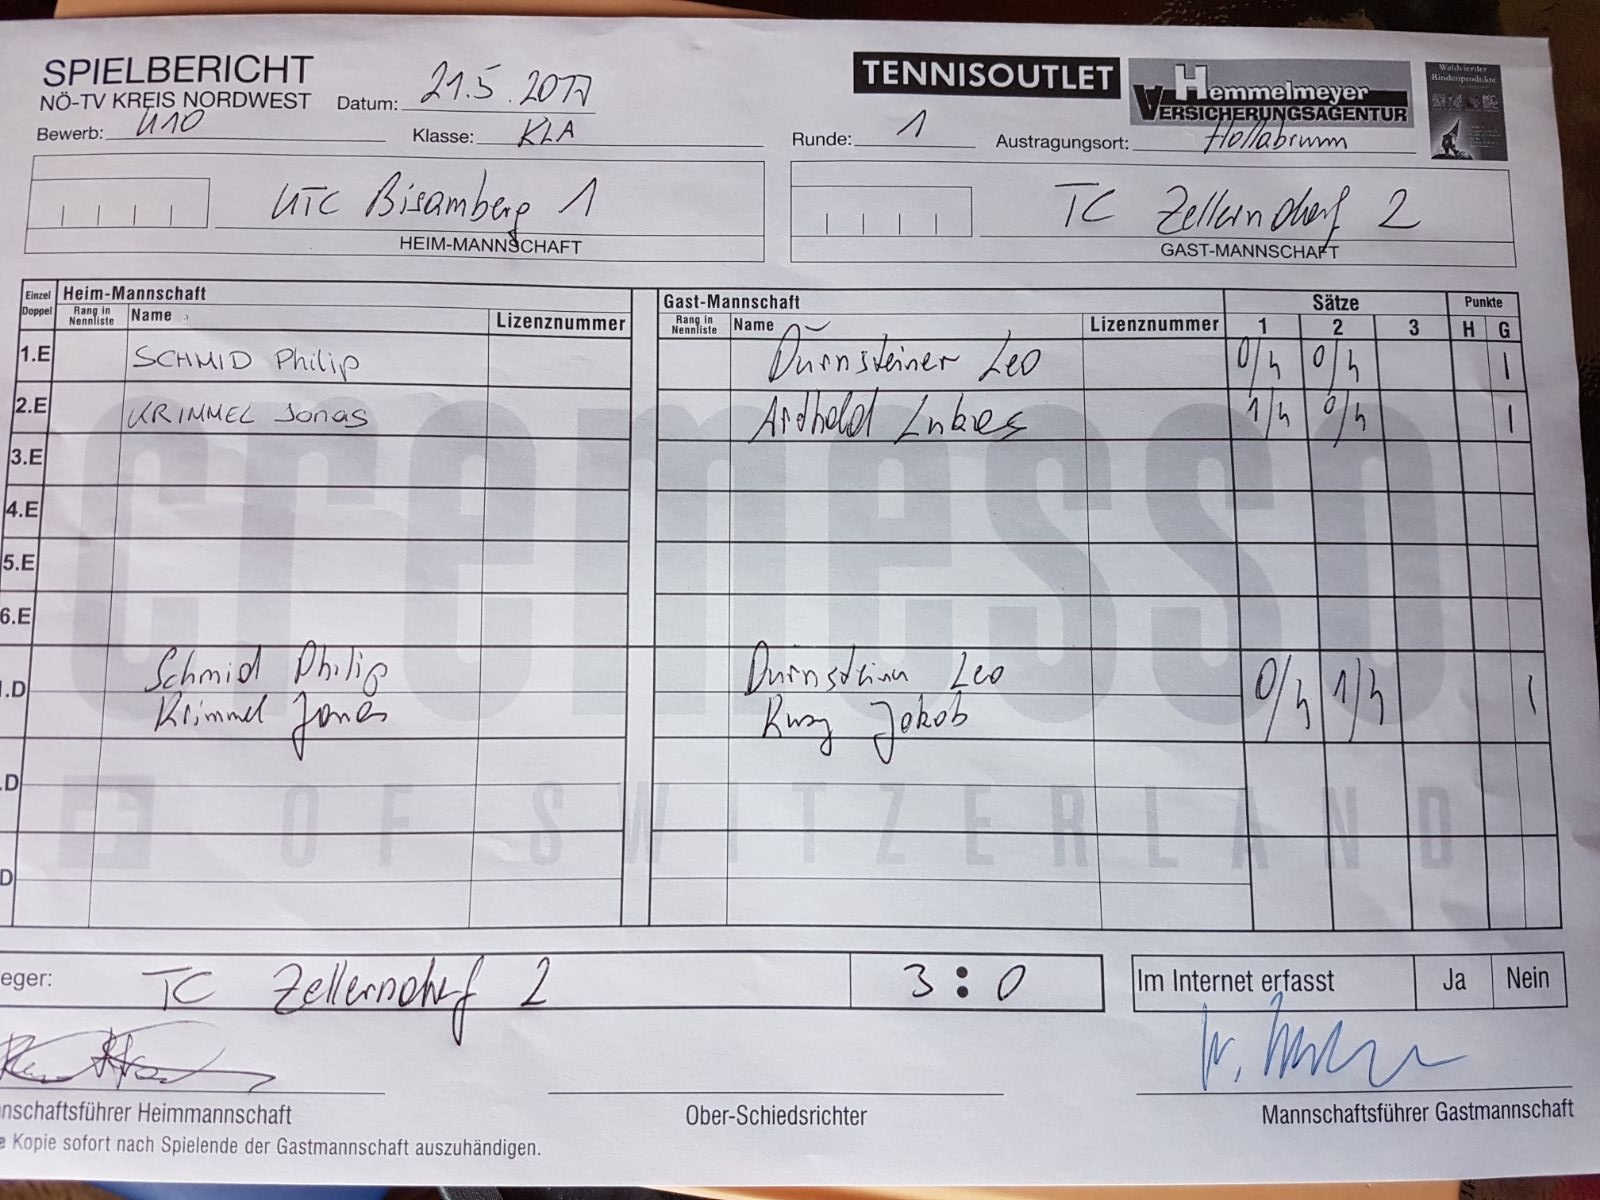 SPIELBERICHT
NÖ-TV KREIS NORDWEST
Datum: 21.5.2017
TENNISOUTLET
Hemmelmeyer
VERSICHERUNGSAGENTUR
Waldvierder
Rindenprodukte
Bewerb: U10
Klasse: KLA
Runde: 1
Austragungsort: Hollabrunn
UTC Bisamberg 1
HEIM-MANNSCHAFT
TC Zellerndorf 2
GAST-MANNSCHAFT
Einzel Doppel
Heim-Mannschaft
Rang in Nennliste Name Lizenznummer
Gast-Mannschaft
Rang in Nennliste Name Lizenznummer
Sätze
1 2 3
Punkte
H G
1.E SCHMID Philip Durnsteiner Leo 0/4 0/4 1
2.E KRIMMEL Jonas Ardhold Lukas 1/4 0/4 1
3.E
4.E
5.E
6.E
.D Schmid Philip Durnsteiner Leo 0/4 1/4 1
Krimmel Jonas Jakob
.D
D
cremesso
OF SWITZERLAND
eger: TC Zellerndorf 2 3:0
Im Internet erfasst Ja Nein
nschaftsführer Heimmannschaft
Ober-Schiedsrichter
Mannschaftsführer Gastmannschaft
e Kopie sofort nach Spielende der Gastmannschaft auszuhändigen.